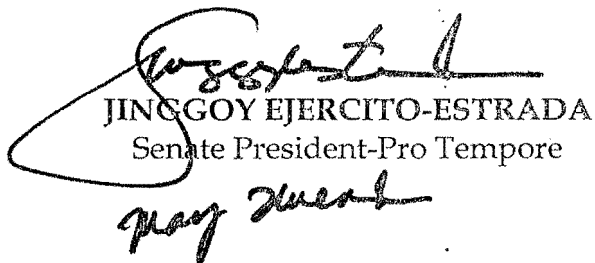 JINGGOY EJERCITO-ESTRADA
Senate President-Pro Tempore
may